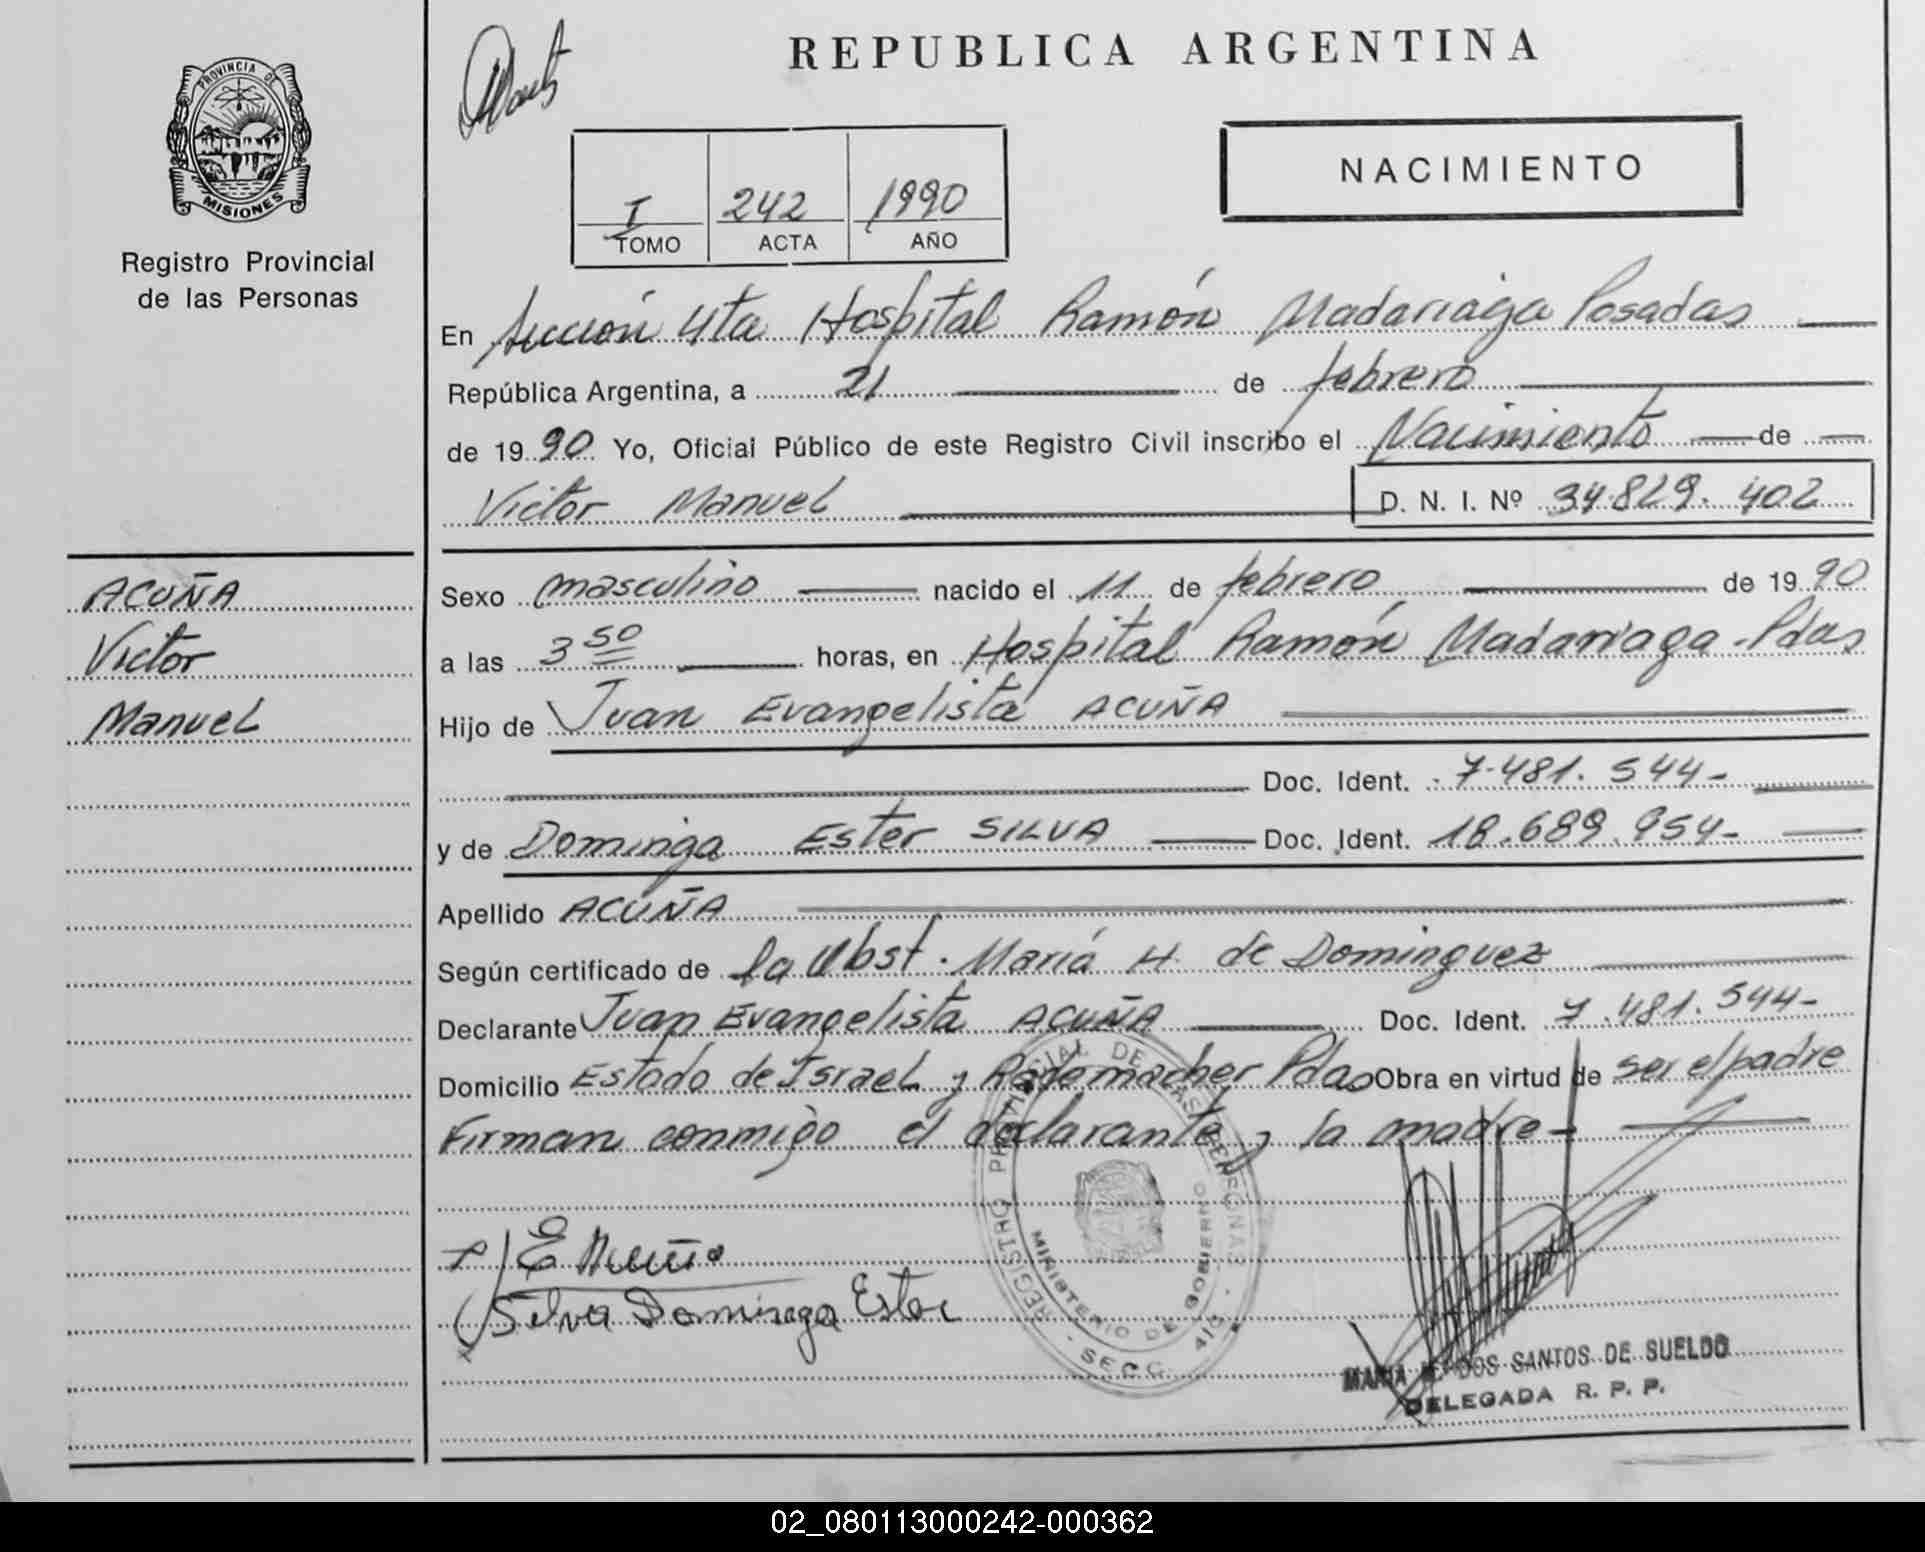 REPUBLICA ARGENTINA
PROVINCIA DE MISIONES
Registro Provincial
de las Personas
NACIMIENTO
I 242 1990
TOMO ACTA AÑO
En Sección 4ta Hospital Ramón Madariaga Posadas
República Argentina, a 21 de febrero
de 1990 Yo, Oficial Público de este Registro Civil inscribo el Nacimiento de
Victor Manuel D. N. I. Nº 34.829.402
ACUÑA
Victor
Manuel
Sexo masculino nacido el 11 de febrero de 1990
a las 3 50 horas, en Hospital Ramón Madariaga - Pdas
Hijo de Juan Evangelista ACUÑA
Doc. Ident. 7.481.544-
y de Dominga Ester SILVA Doc. Ident. 18.689.954-
Apellido ACUÑA
Según certificado de la Obst. María H. de Dominguez
Declarante Juan Evangelista ACUÑA Doc. Ident. 7.481.544-
Domicilio Estado de Israel y Rademacher Pdas Obra en virtud de ser el padre
Firman conmigo el declarante y la madre-
E Acuña
Silva Dominga Ester
REGISTRO PROVINCIAL DE LAS PERSONAS
MINISTERIO DE GOBIERNO
SECC. 4ta
MARIA DOS SANTOS DE SUELDO
DELEGADA R. P. P.
02_080113000242-000362